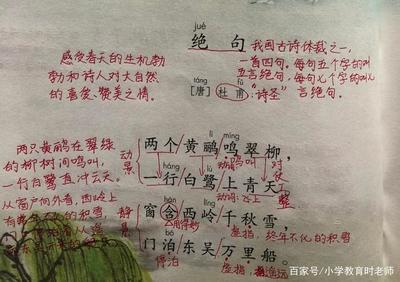 jué
绝 句
我国古诗体裁之一，
一首四句。每句五个字的叫
五言绝句，每句七个字的叫
言绝句。
感受春天的生机勃
勃和诗人对大自然
的喜爱、赞美之情。
táng fǔ
[唐] 杜 甫
“诗圣”
lí míng
两个/黄鹂/鸣翠柳，
动词:叫
háng lù
一行/白鹭/上青天。
动词:飞
对仗工整
动景
两只黄鹂在翠绿
的柳树间鸣叫，
一行白鹭直冲云天。
从窗户向外看，西岭上
积雪
hán lǐng
窗含/西岭/千秋雪，
用得妙
虚指，终年不化的积雪
静景
bó
门泊/东吴/万里船。
停泊
虚指，
百家号/小学教育时老师